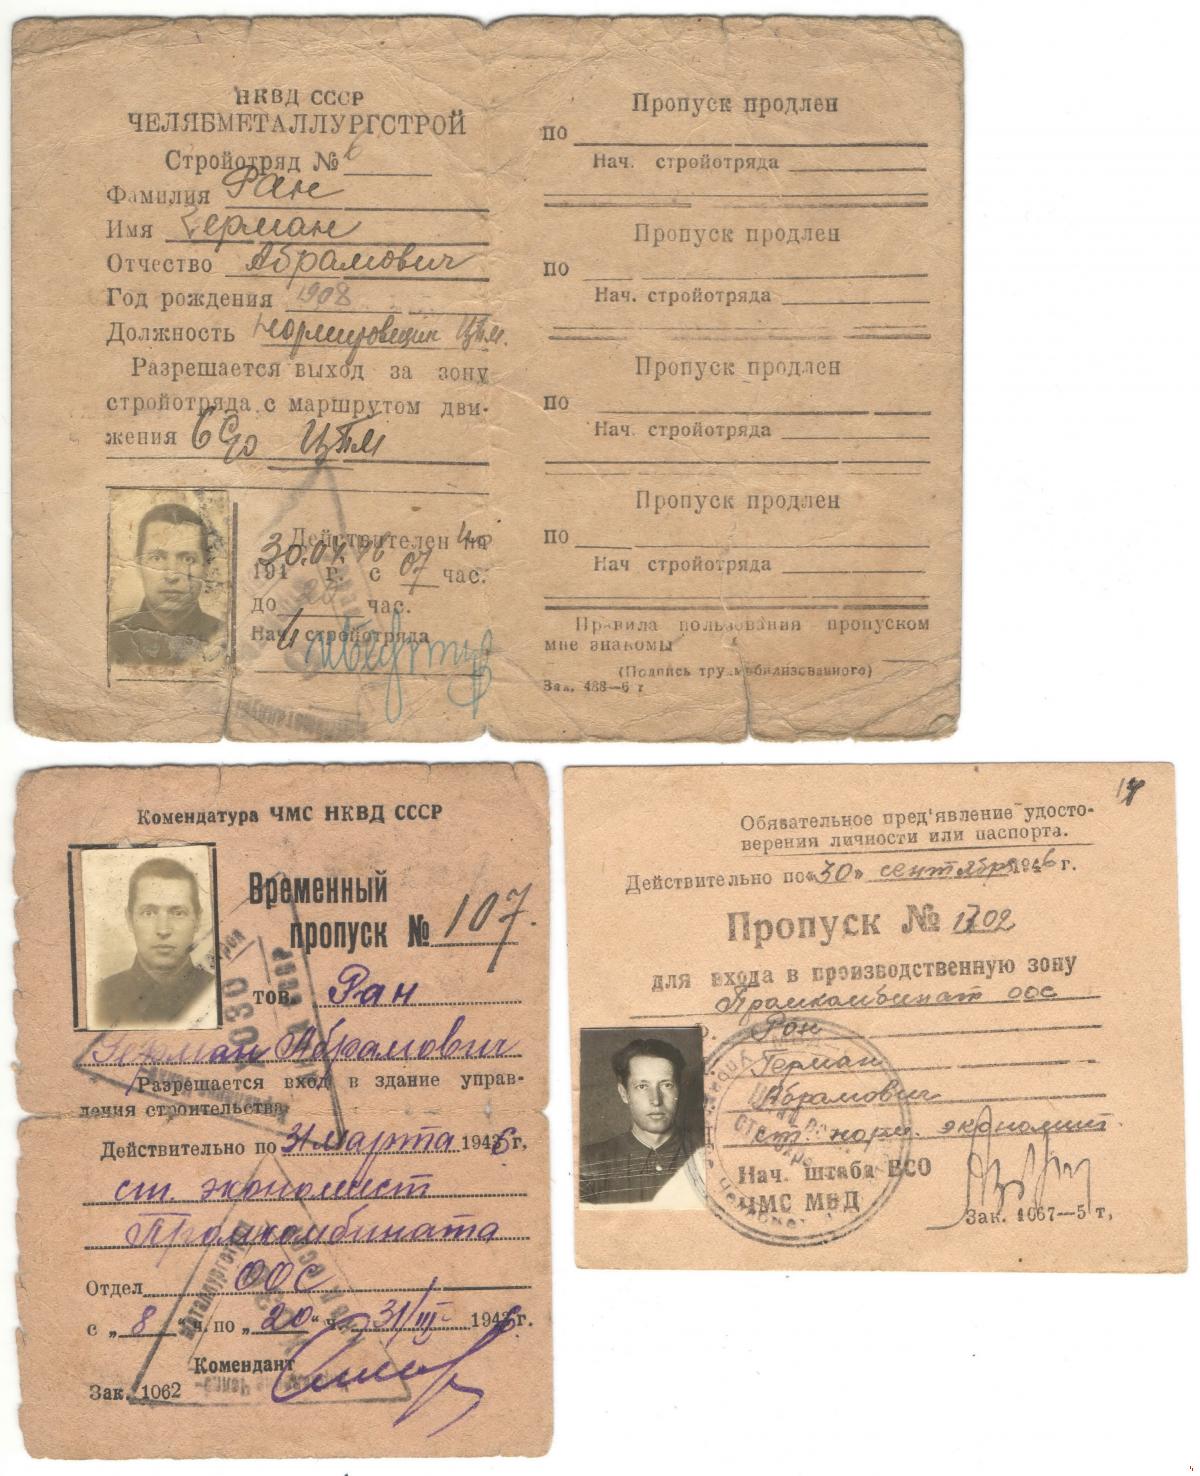 НКВД СССР
ЧЕЛЯБМЕТАЛЛУРГСТРОЙ
Стройотряд № 6
Фамилия Ран
Имя Герман
Отчество Абрамович
Год рождения 1908
Должность нормировщик ЦТМ.
Разрешается выход за зону
стройотряда с маршрутом дви-
жения ЦТМ
Действителен по
30.04.46
194 г. с 07 час.
до 20 час.
Нач. стройотряда
Пропуск продлен
по
Нач. стройотряда
Пропуск продлен
по
Нач. стройотряда
Пропуск продлен
по
Нач. стройотряда
Пропуск продлен
по
Нач стройотряда
Правила пользования пропуском
мне знакомы
(Подпись трудмобилизованного)
Зак. 488—6 г
Комендатура ЧМС НКВД СССР
Временный
пропуск № 107.
тов. Ран
Герман Абрамович
Разрешается вход в здание управ-
ления строительства
Действительно по 31 марта 1946 г.
ст. экономист
Промкомбината
Отдел ООС
с „8“ ч. по „20“ ч. 31/III- 1946 г.
Комендант
Зак. 1062
17
Обязательное пред'явление удосто-
верения личности или паспорта.
Действительно по «30» сентября 1946 г.
Пропуск № 1702
для входа в производственную зону
Промкомбинат ООС
Ран
Герман
Абрамович
ст. норм. экономист.
Нач. штаба ВСО
ЧМС МВД
Зак. 1067—5 т,